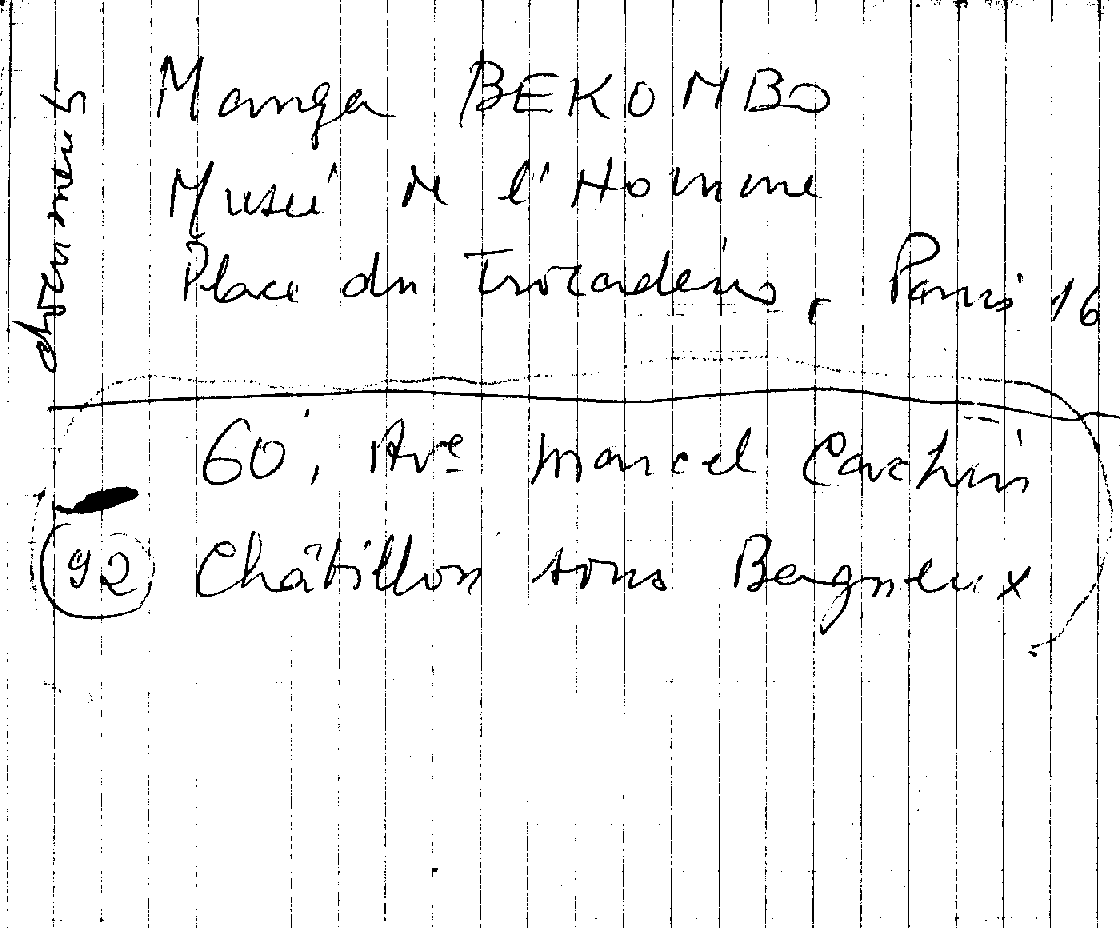 Manga BEKOMBO
Musée de l'Homme
Place du Trocadéro, Paris 16
60, Ave Marcel Cachin
92 Châtillon sous Bagneux